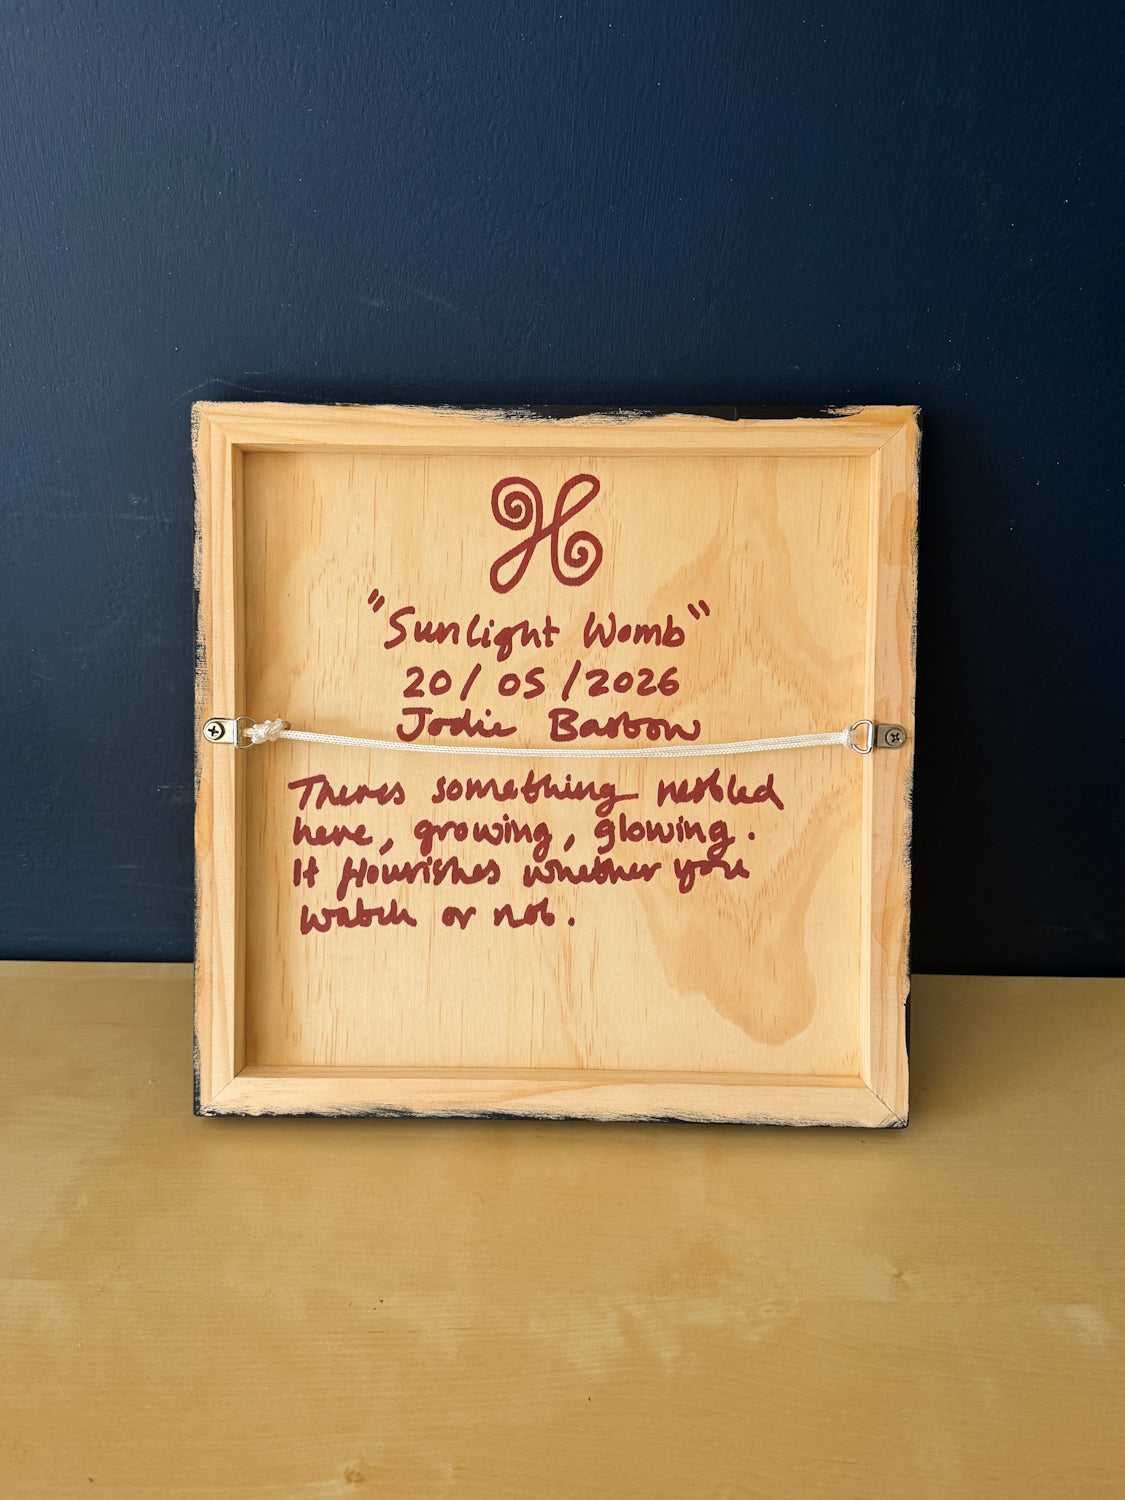 "Sunlight Womb"
20/05/2026
Jodie
Theres something nestled
here, growing, glowing.
It flourishes whether you
watch or not.